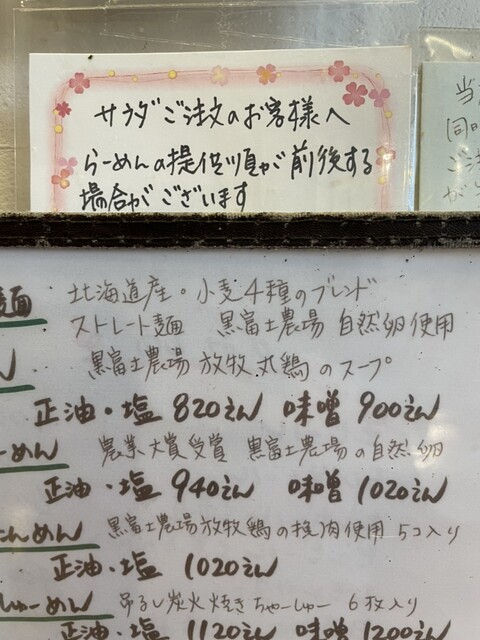 サラダご注文のお客様へ
らーめんの提供順が前後する
場合がございます
当
同時
ご注
が
麺 北海道産・小麦4種のブレンド
ストレート麺 黒富士農場 自然卵使用
ん 黒富士農場 放牧丸鶏のスープ
正油・塩 820えん 味噌 900えん
ーめん 農業大賞受賞 黒富士農場の自然卵
正油・塩 940えん 味噌 1020えん
んめん 黒富士農場放牧鶏の挽肉使用 5コ入り
正油・塩 1020えん
しゅーめん 吊るし炭火焼きちゃーしゅー 6枚入り
正油・塩 1120えん 味噌 1200えん